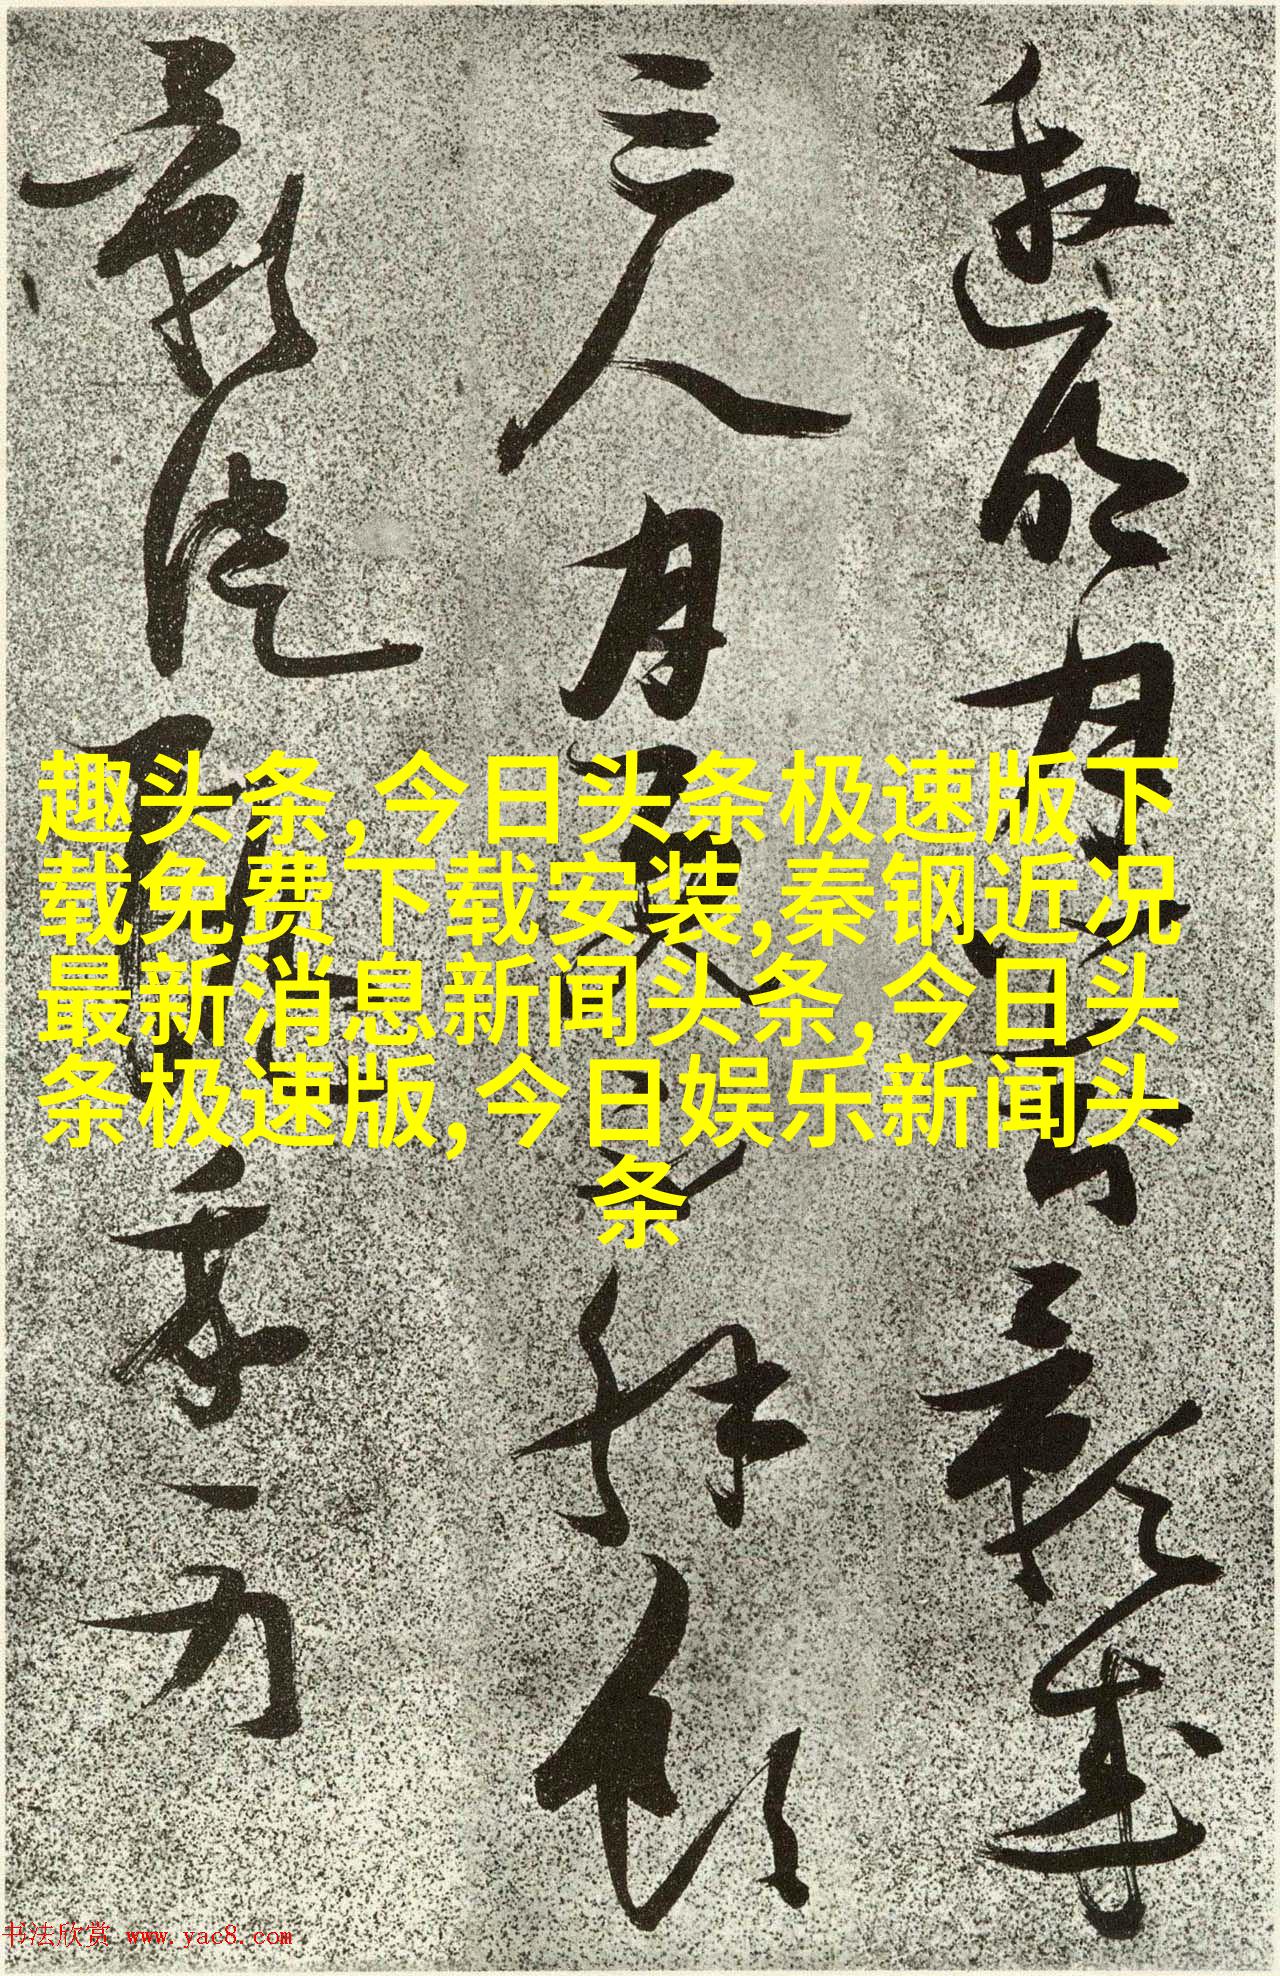 邀明月影成
三人月既不解飲
影徒
趣头条,今日头条极速版下
载免费下载安装,秦钢近况
最新消息新闻头条,今日头
条极速版,今日娱乐新闻头
条
书法欣赏 www.yac8.com